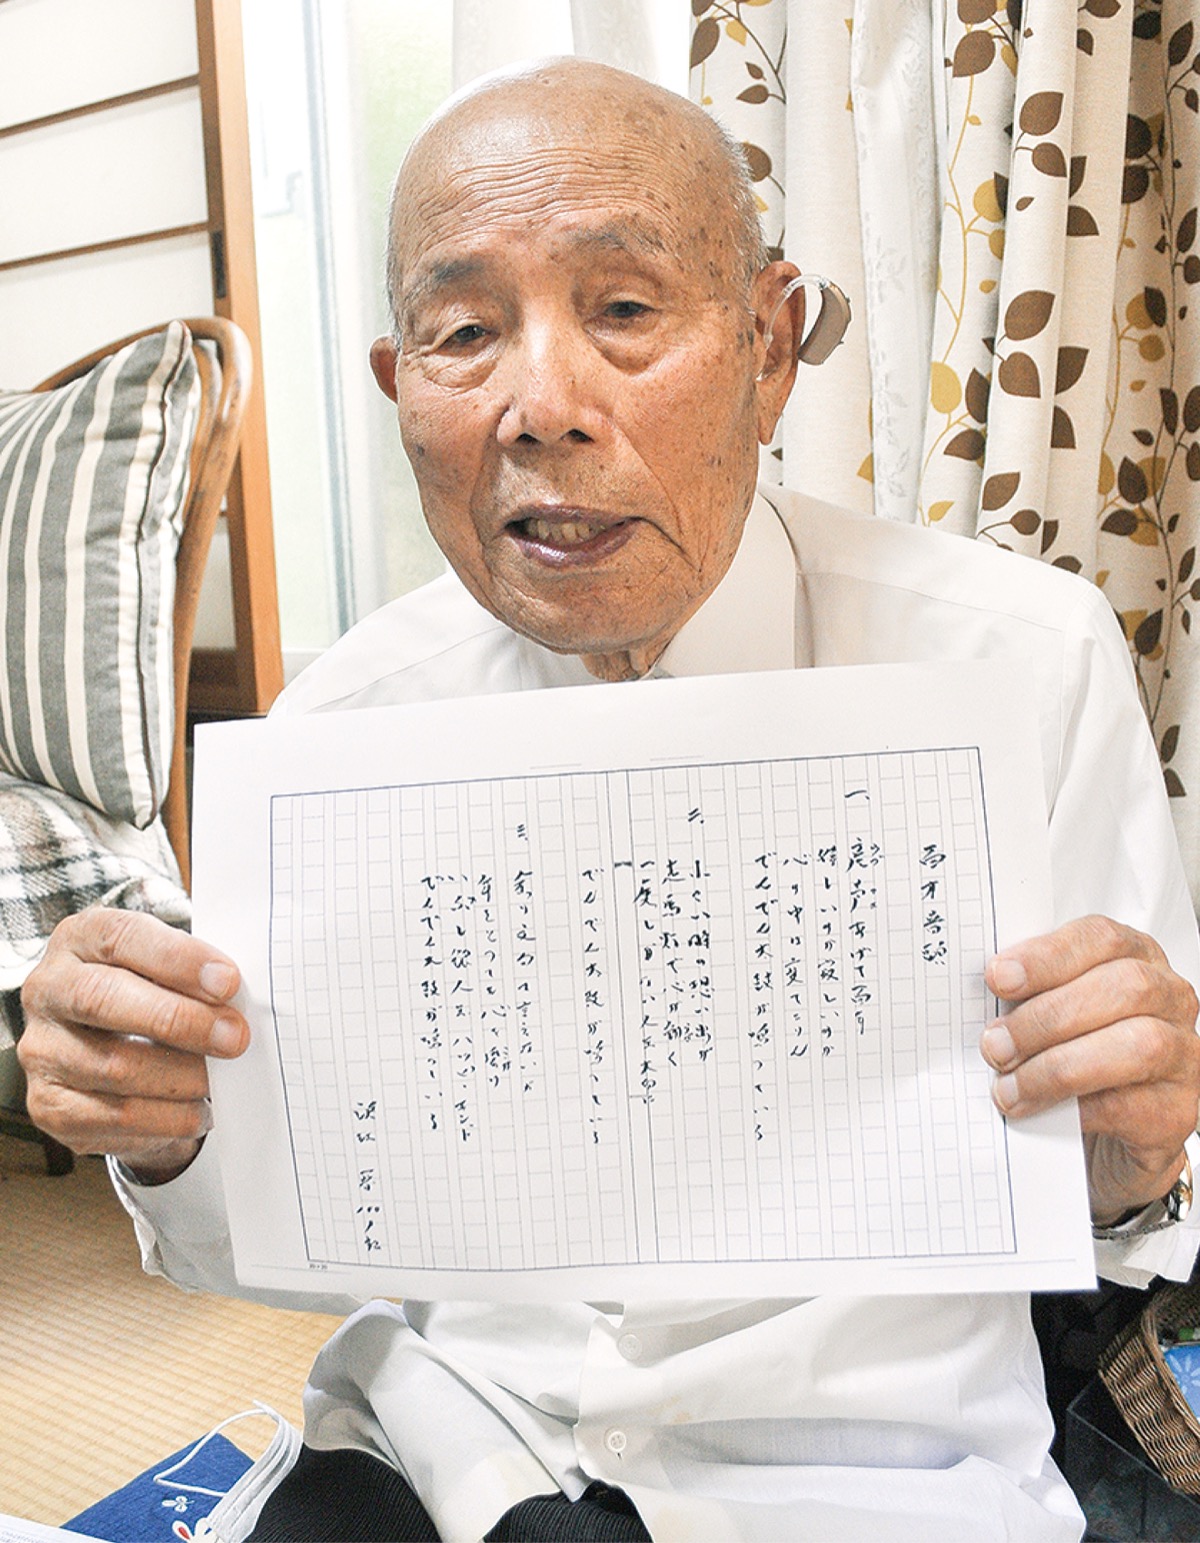 百才音頭
一、産声あげて百年
嬉しいのか寂しいのか
心の中は変てこりん
でんでん太鼓が鳴っている
二、小さい時の想い出が
走馬灯で心が動く
一度しかない人生大切に
でんでん太鼓が鳴っている
三、余り文句て言えないが
年をとっても心を
いぶし銀人生ハッピーエンド
でんでん太鼓が鳴っている